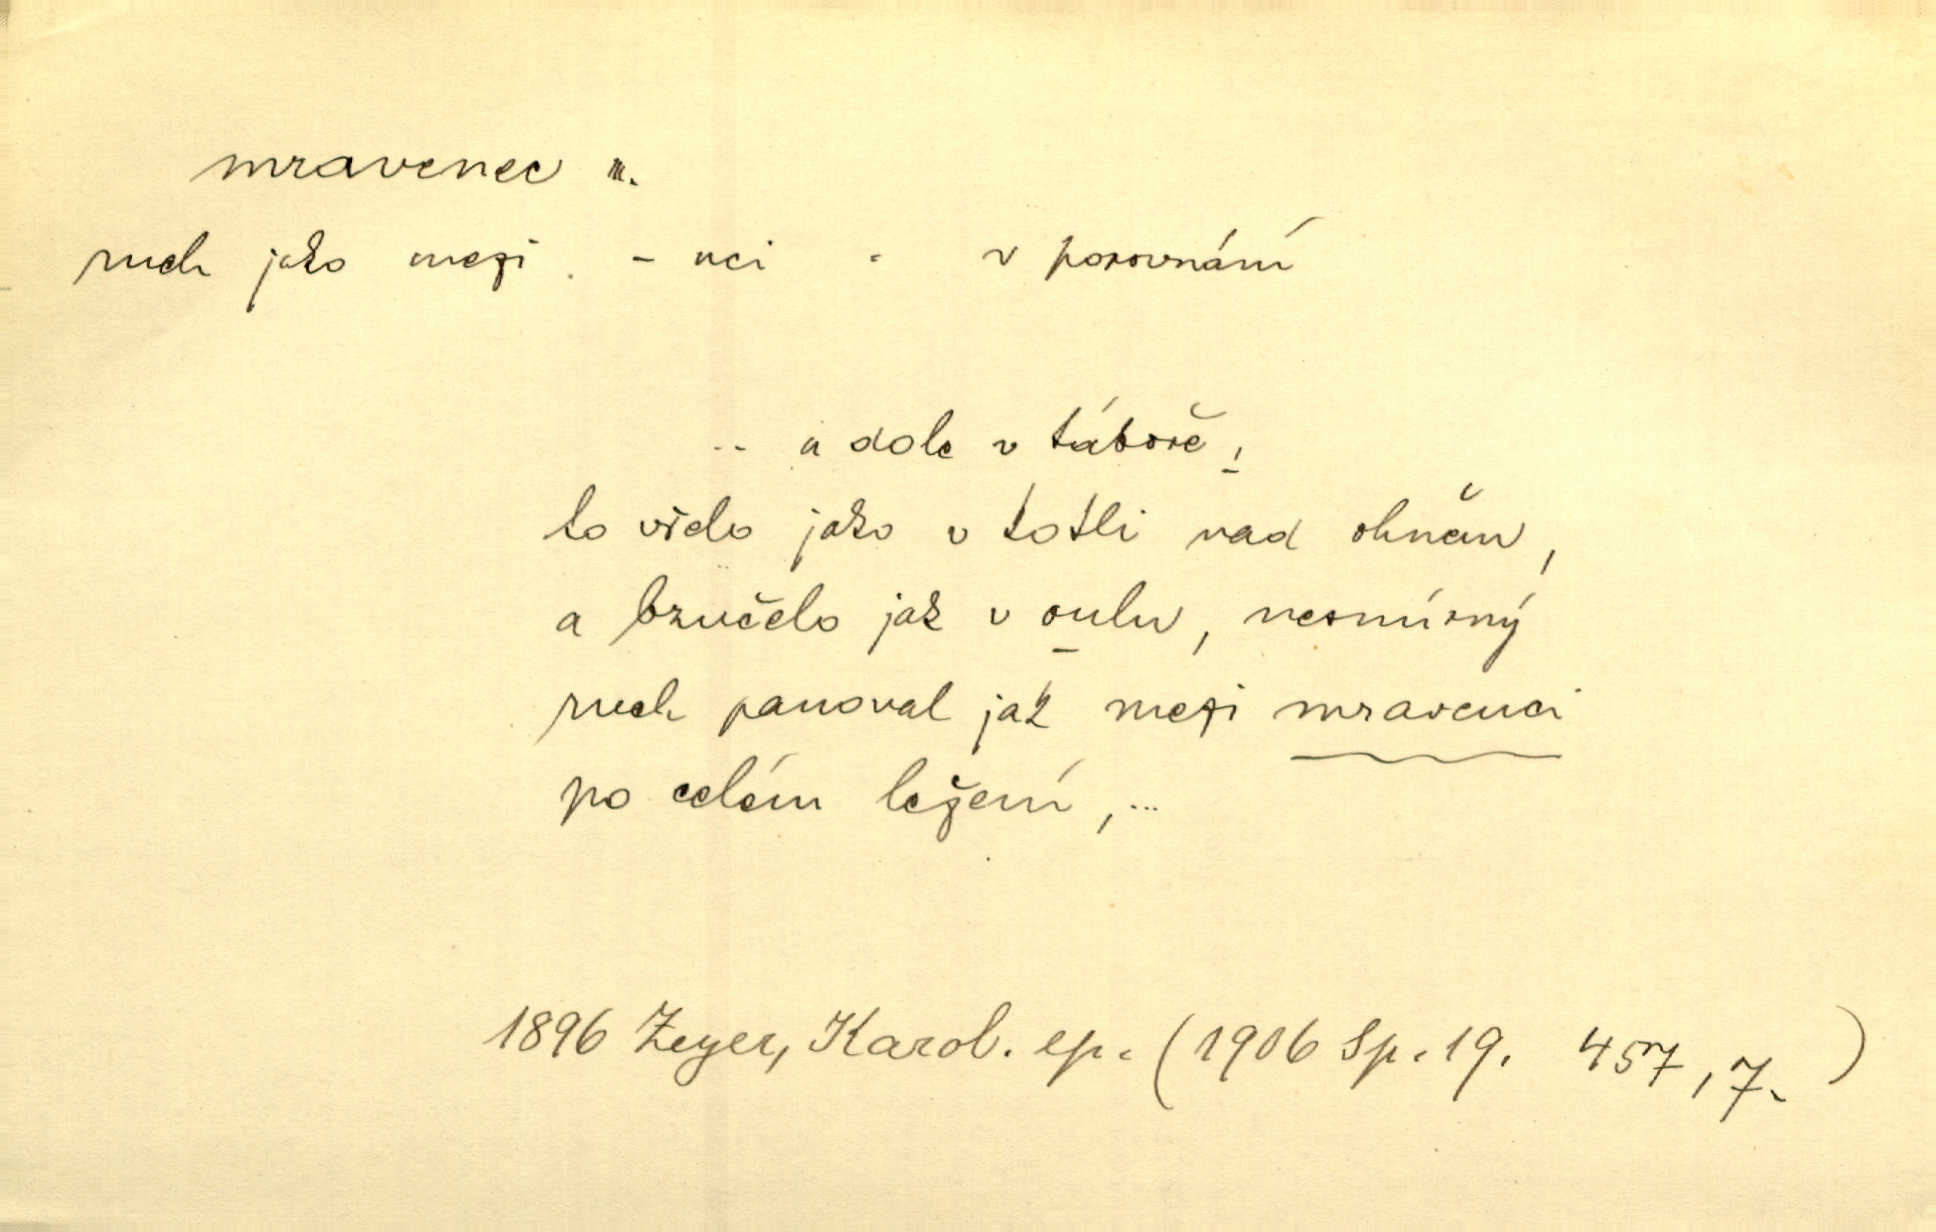 mravenec m.
ruch jako mezi - nci v porovnání
.. a dole v táboře,
to vřelo jako v kotli nad ohněm,
a bzučelo jak v oulu, nesmírný
ruch panoval jak mezi mravenci
po celém ležení, ...
1896 Zeyer, Karol. ep. (1906 Sp. 19. 457, 7.)